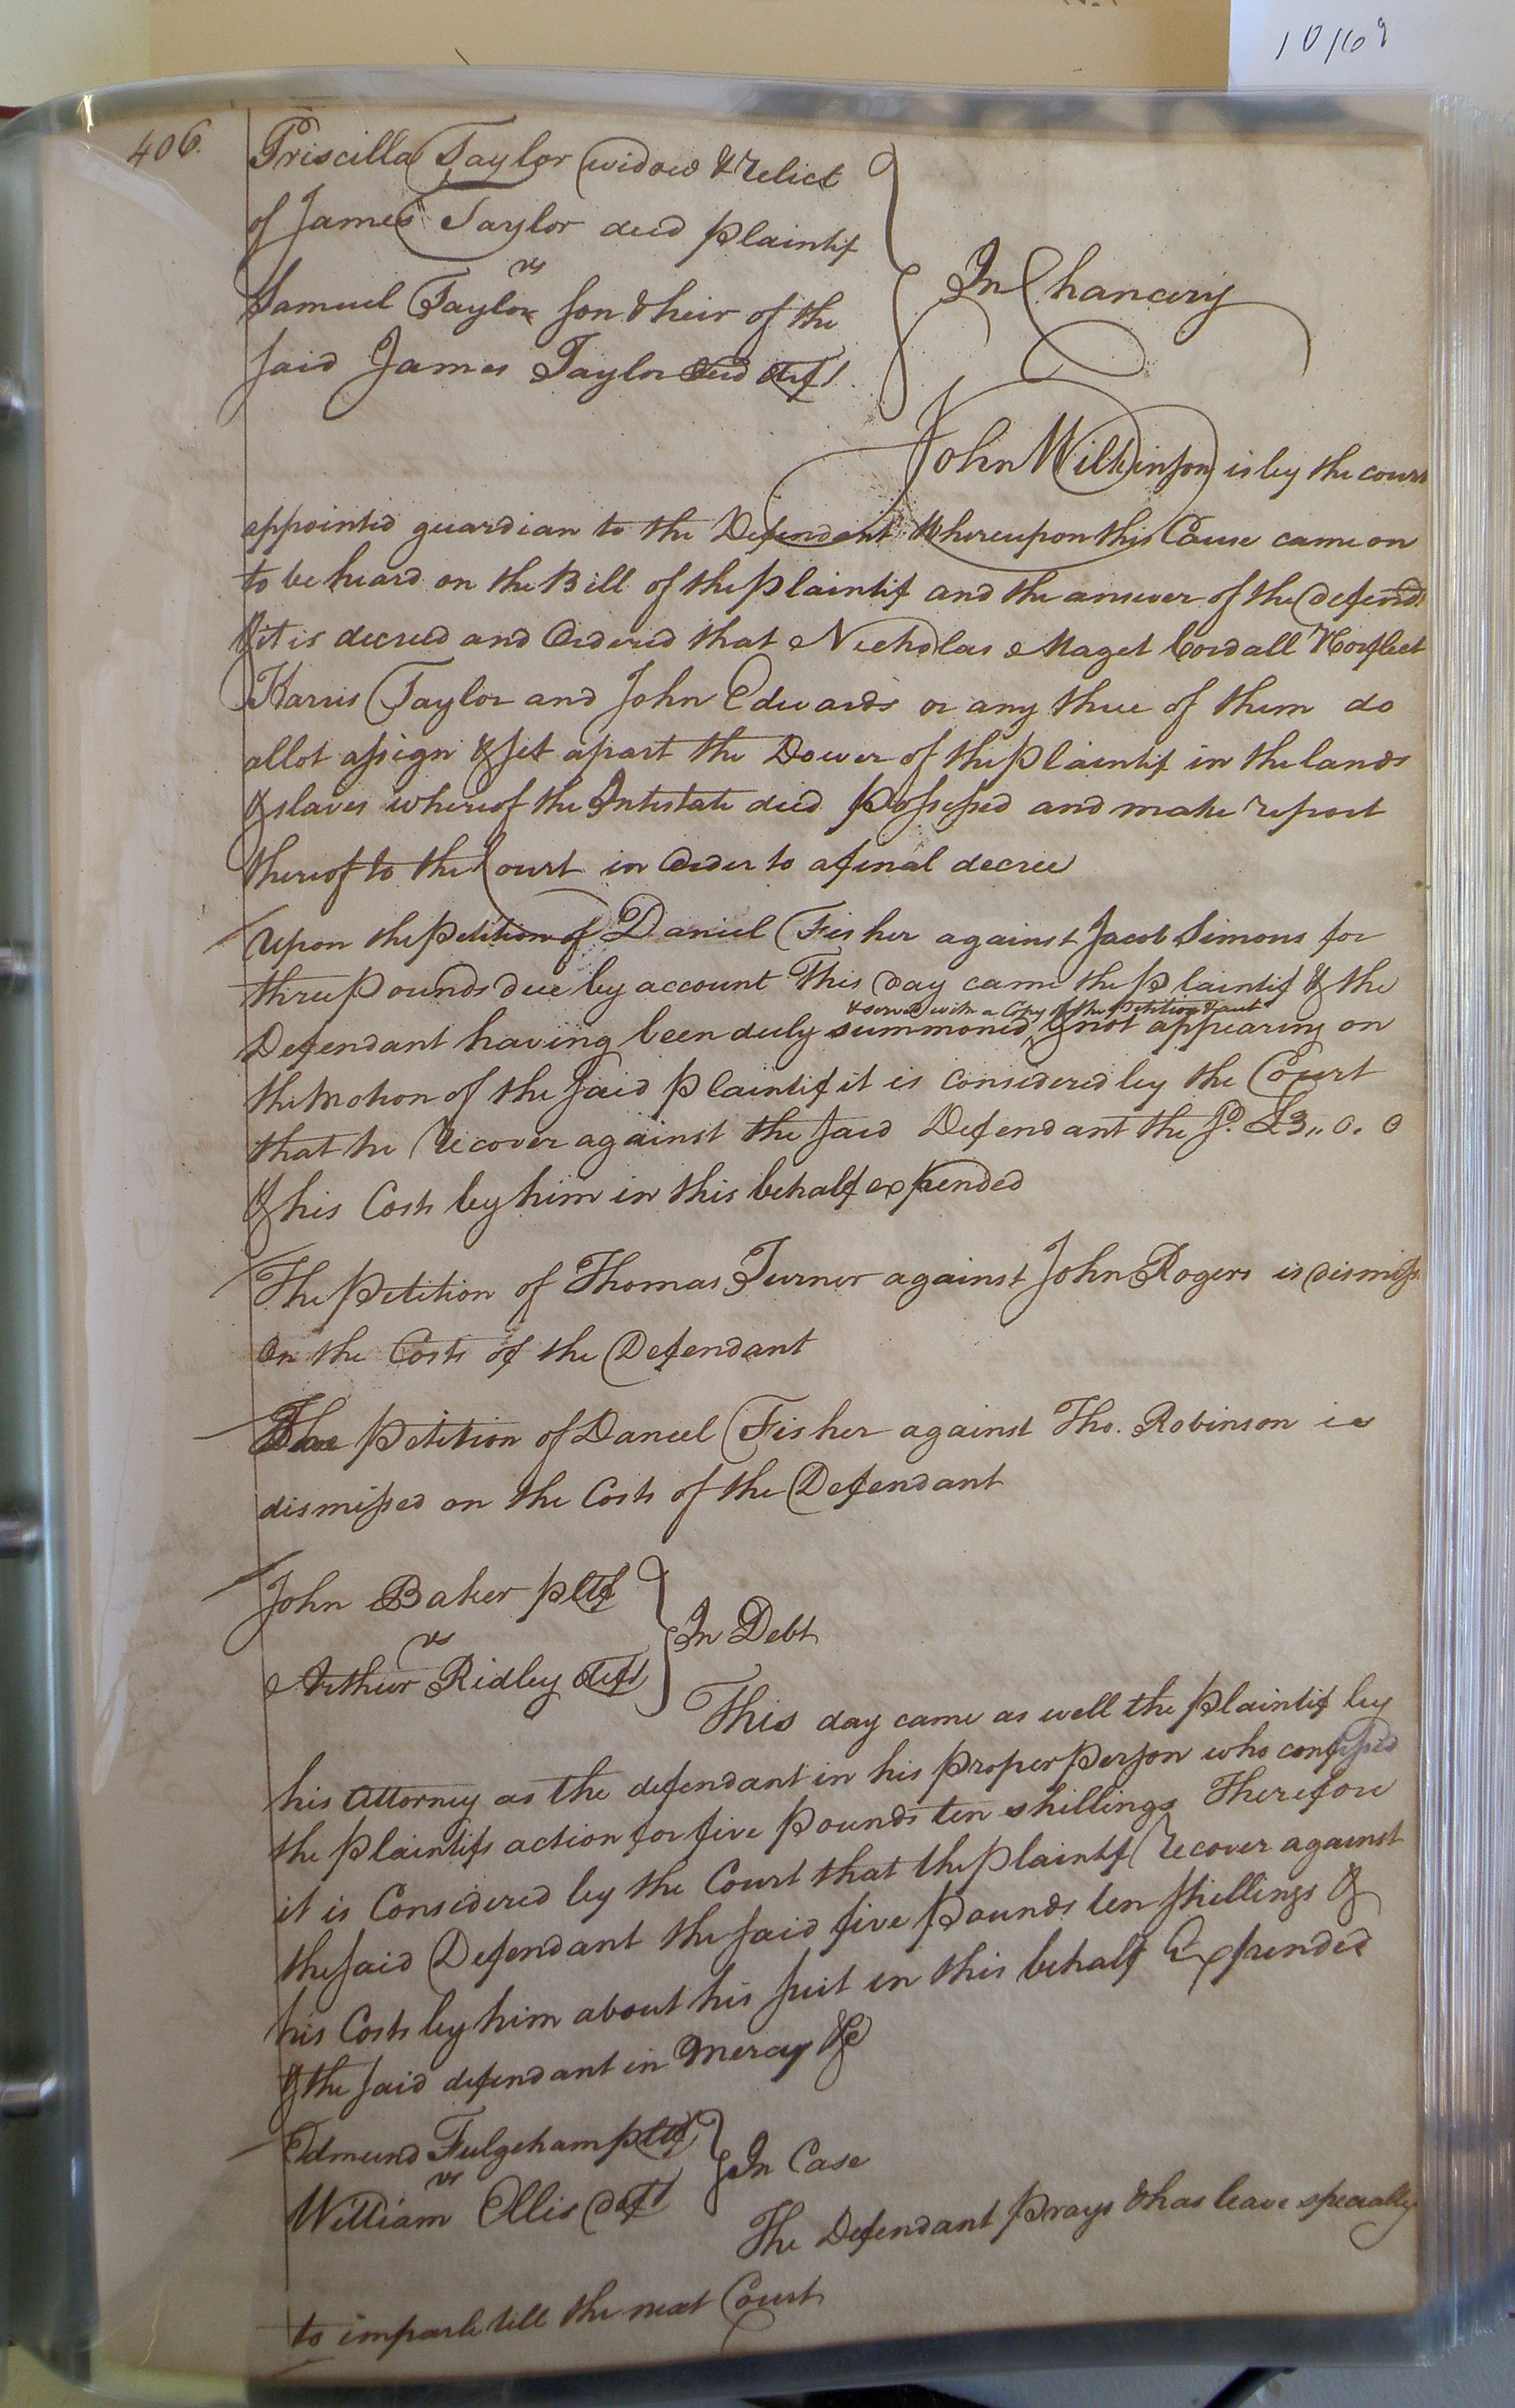 10/69
406.
Priscilla Taylor widow & relict
of James Taylor decd plaintif
vs
Samuel Taylor son & heir of the
said James Taylor decd deft
In Chancery
John Wilkinson is by the court
appointed guardian to the Defendent Whereupon this Cause came on
to be heard on the Bill of the plaintif and the answer of the defendt
& it is decreed and Ordered that Nicholas Maget Cordall Norfleet
Harris Taylor and John Edwards or any three of them do
allot assign & set apart the Dower of the plaintif in the lands
& slaves whereof the Intestate died possessed and make report
thereof to the Court in Order to a final decree
Upon the petition of Daniel Fisher against Jacob Simons for
three pounds due by account This day came the plaintif & the
& served with a Copy of the petition & acct
Defendant having been duly summoned & not appearing on
the motion of the said plaintif it is considered by the Court
that he recover against the said Defendant the sd. £3,, 0. 0
& his Costs by him in this behalf expended
The petition of Thomas Turner against John Rogers is dismiss
on the Costs of the Defendant
The petition of Daniel Fisher against Tho. Robinson is
dismissed on the Costs of the Defendant
John Baker pltf
vs
Arthur Ridley deft
In Debt
This day came as well the plaintif by
his attorney as the defendant in his proper person who confessed
the plaintifs action for five pounds ten shillings Therefore
it is Considered by the Court that the plaintif recover against
the said Defendant the said five pounds ten shillings &
his Costs by him about his suit in this behalf Expended
& the said defendant in mercy &c
Edmund Fulgeham pltf
vs
William Ellis deft
In Case
The Defendant prays & has leave specially
to imparle till the next Court